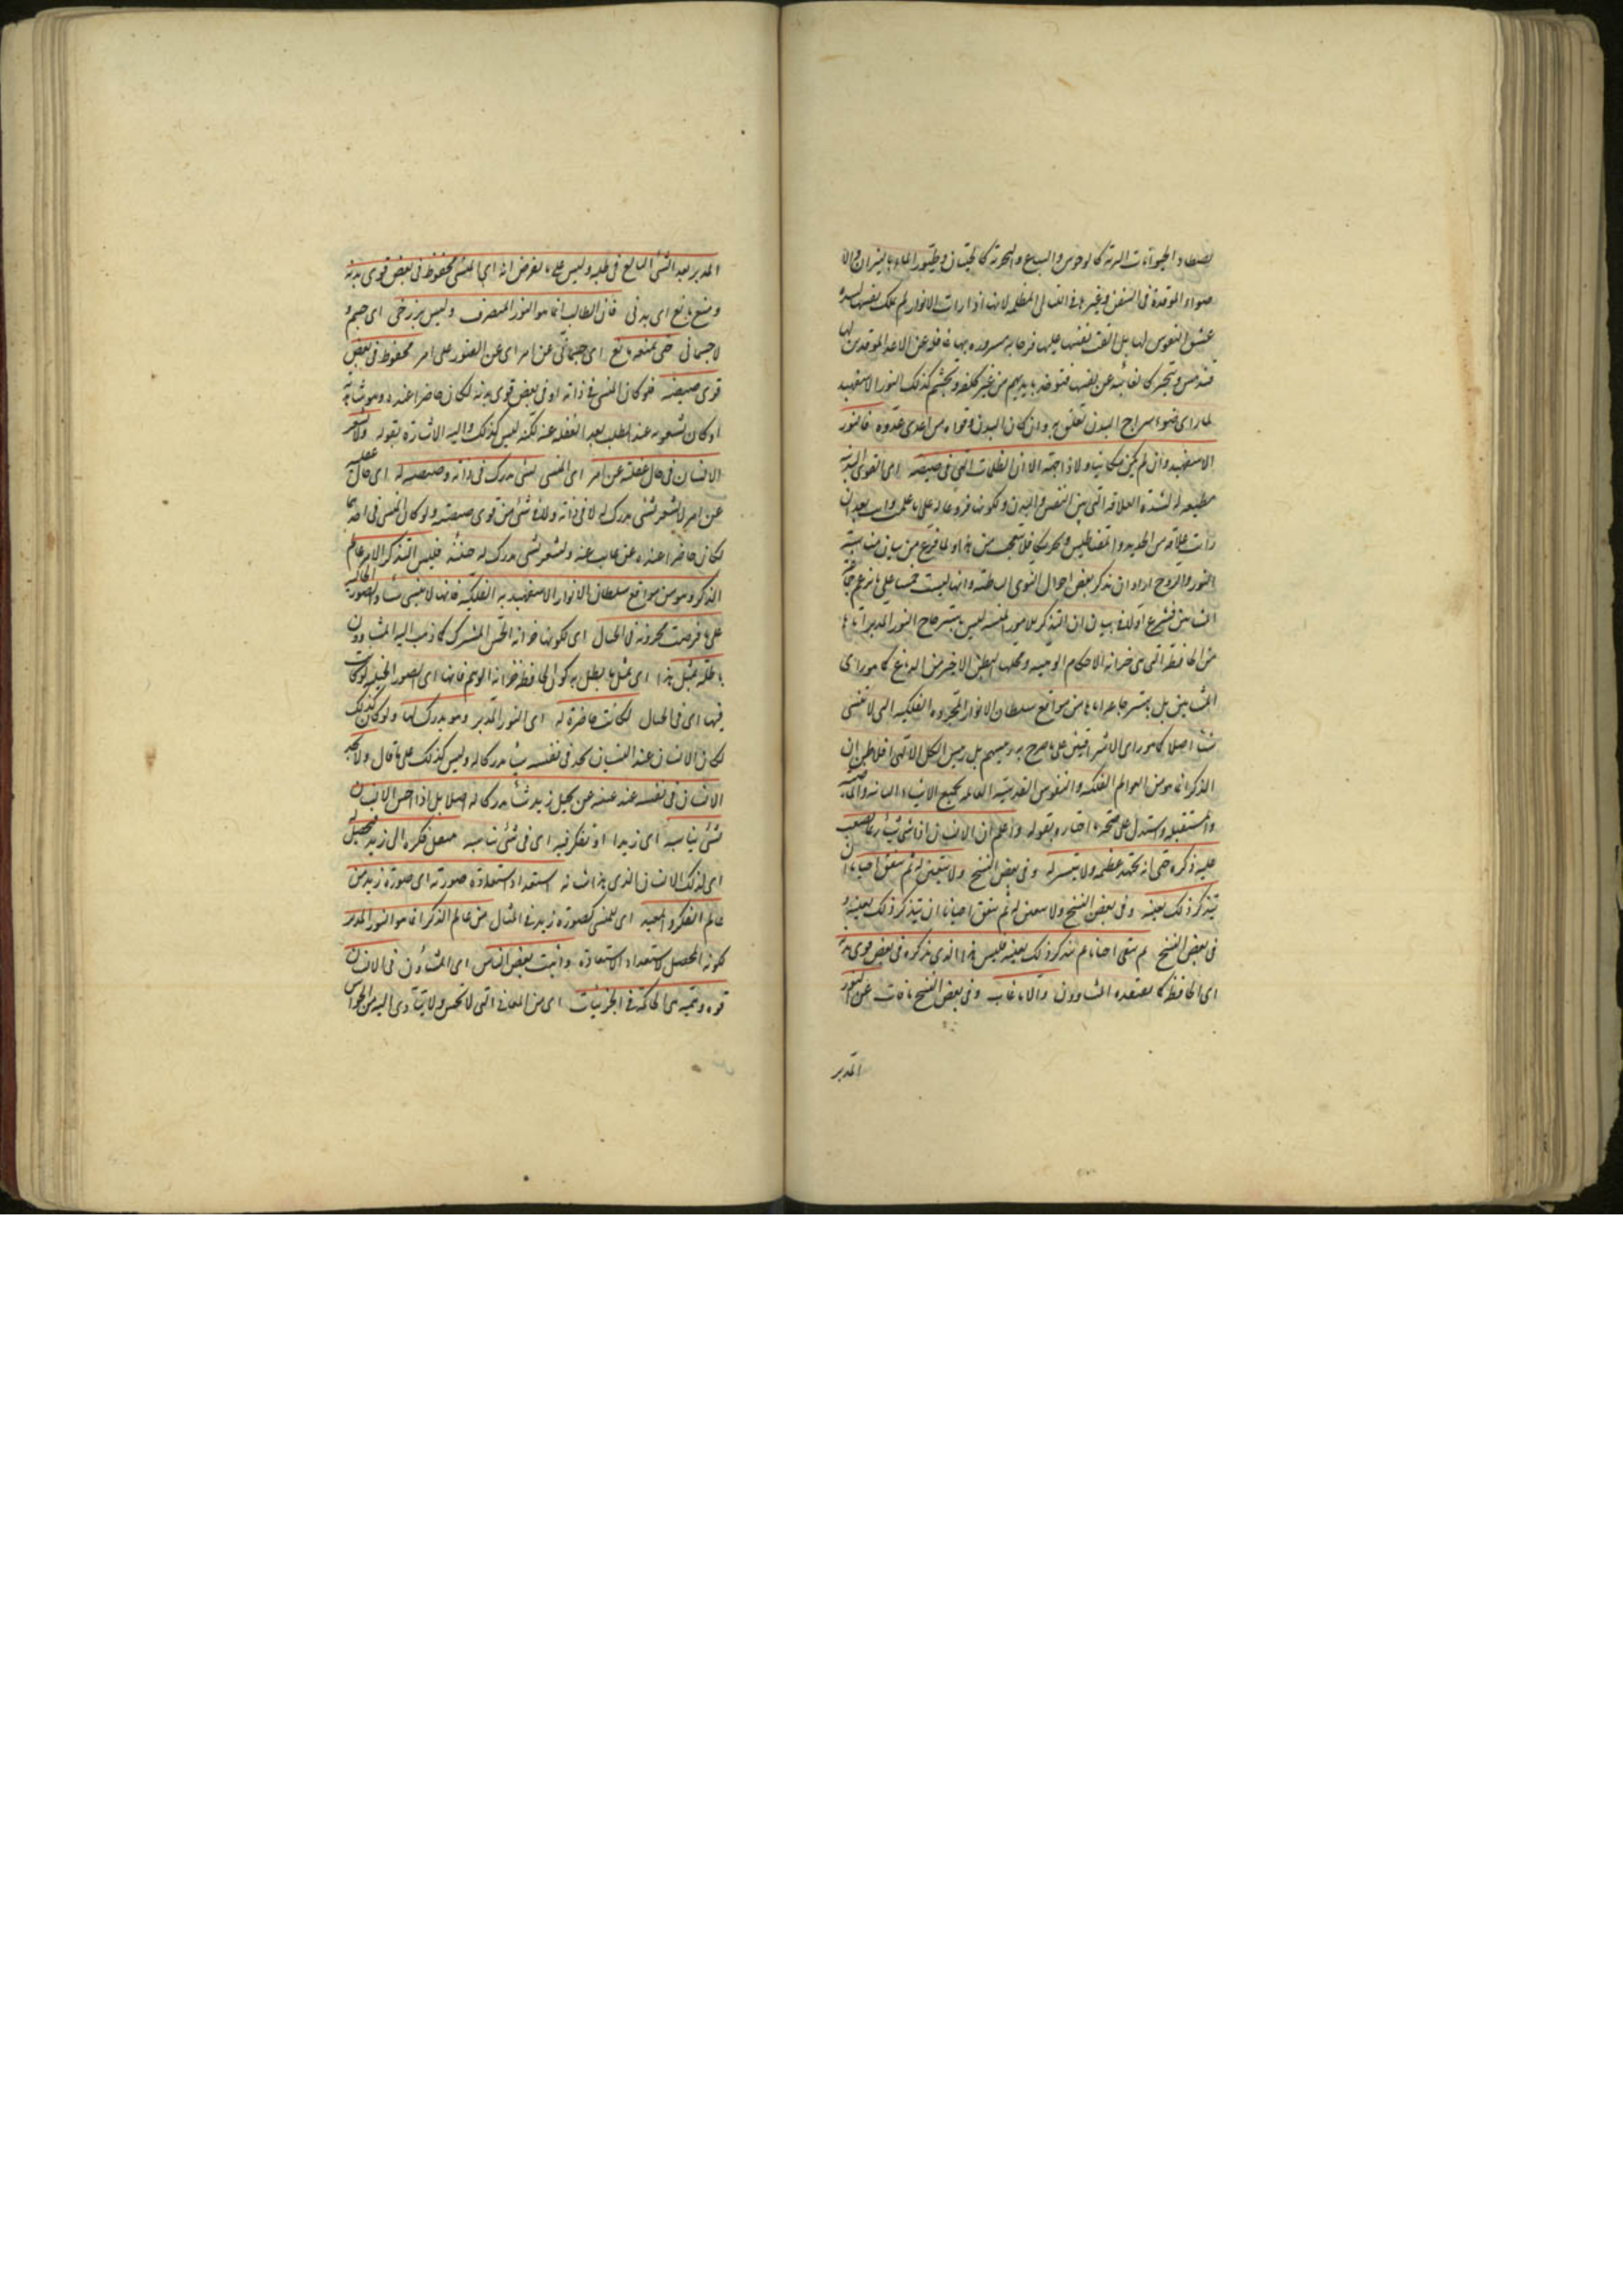 يصطاد الحيوانات البرية كالوحوش والسباع والبحرية كالحيتان وطيور الماء بالنيران والا
ضواء الموقدة في السفن وغيرها في الليالي المظلمة لانها اذا رات الانوار لم تملك نفسها لشدة
عشق النفوس لها بل القت نفسها عليها فرحا به مسرورة بها غافلة عن الاعداء الموقدين لها
فتدهش وتتحير كالغائبة عن نفسها فتوخذ بايديهم من غير كلفة وتجشم كذلك النور الاسفهبد
لما راى ضوء سراج البدن تعلق به وان كان البدن وقواه من اعدى عدوه فالنور
الاسفهبد وان لم يكن مكانيا ولا ذا جهة الا ان الظلمات التي في صيصيته اى القوى البدنية
مطيعة له لشدة العلاقة التي بين النفس والبدن وكونها فروعا له على ما علمت وانت بعد ان
رايت علاقة من الحديد والمغناطيس وتحركه فلا تتعجب من هذا ولما فرغ من بيان مناسبة
النور والروح اراد ان يذكر بعض احوال القوى الباطنة وانها ليست خمسا على ما زعم جماعة
المشائين فشرع اولا في بيان ان التذكر للامور المنسية ليس باسترجاع النور المدبر اياها
من الحافظة التي هي خزانة الاحكام الوهمية ومحلها البطن الاخير من الدماغ كما هو راى
المشائين بل باسترجاعه اياها من مواقع سلطان الانوار المجردة الفلكية التي لا تنسى
شيئا اصلا كما هو راى الاشراقيين على ما صرح به رئيسهم بل رئيس الكل الالهي افلاطن ان
الذكر انما هو من العوالم الفلكية والنفوس القدسية العالمة بجميع الاشياء الماضية والحاضرة
والمستقبلة واستدل على صحة ما اختاره بقوله واعلم ان الانسان اذا نسى شيئا ربما يصعب
عليه ذكره حتى انه يجتهد عظيما ولا يتيسر له وفي بعض النسخ ولا يتفق له ثم يتفق احيانا ان
يتذكر ذلك بعينه وفي بعض النسخ ولا يتفق له ثم يتفق احيانا ان يتذكر ذلك بعينه و
في بعض النسخ ثم يتفق احيانا ثم يتذكر ذلك بعينه فليس هذا الذي يذكره في بعض قوى بدنه
اى الحافظة كما يعتقده المشاؤون والا ما غاب وفي بعض النسخ ما فات عن النور
المدبر
المدبر بعد السعى البالغ في طلبه وليس على ما يفرض انه اى المنسى محفوظ في بعض قوى بدنه
ومنع مانع اى بدنى فان الطالب انما هو النور المتصرف وليس ببرزخى اى جسم و
لا جسمانى حتى يمنعه مانع اى جسمانى عن امر اى عن العثور على امر محفوظ في بعض
قوى صيصيته فلو كان المنسى في ذاته او في بعض قوى بدنه لكان حاضرا عنده وهو شاعر به
او كان شعوره عند الطلب بعد الغفلة عنه لكنه ليس كذلك واليه الاشارة بقوله ولا يشعر
الانسان في حال غفلته عن امر اى المنسى بشئ مدرك في ذاته وصيصيته له اى حال غفلته
عن امر لا يشعر بشئ مدرك له لا في ذاته ولا في شئ من قوى صيصيته ولو كان المنسى في احدهما
لكان حاضرا عنده غير غائب عنه ولشعر بشئ مدرك له حينئذ فليس التذكر الا من عالم
الذكر وهو من مواقع سلطان الانوار الاسفهبدية الفلكية فانها لا تنسى شيئا والصور الخيالية
على ما فرضت مخزونة في الخيال اى لكونها خزانة الحس المشترك كما ذهب اليه المشاؤون
باطلة بمثل هذا اى بمثل ما بطل به كون الحافظة خزانة الوهم فانها اى الصور الخيالية لو كانت
فيها اى في الخيال لكانت حاضرة له اى النور المدبر وهو يدرك لها ولو كان كذلك
لكان الانسان عند النسيان يجد في نفسه شيئا مدركا له وليس كذلك على ما قال ولا يجد
الانسان في نفسه عند غيبته عن تخيل زيد شيئا مدركا له اصلا بل اذا احس الانسان
بشئ يناسبه اى زيدا او تفكر فيه اى في شئ يناسبه ينتقل فكره الى زيد فيحصل له
اى لذلك الانسان الذى هذا شانه استعداد استعادة صورته اى صورة زيد من
عالم الذكر والمعيد اى للمنسى كصورة زيد في المثال من عالم الذكر انما هو النور المدبر
لكونه المحصل لاستعداد الاستعادة واثبت بعض الناس اى المشاؤون في الانسان
قوة وهمية هى الحاكمة في الجزئيات اى من المعانى التي لا تحس ولا يتادى اليه من الحواس